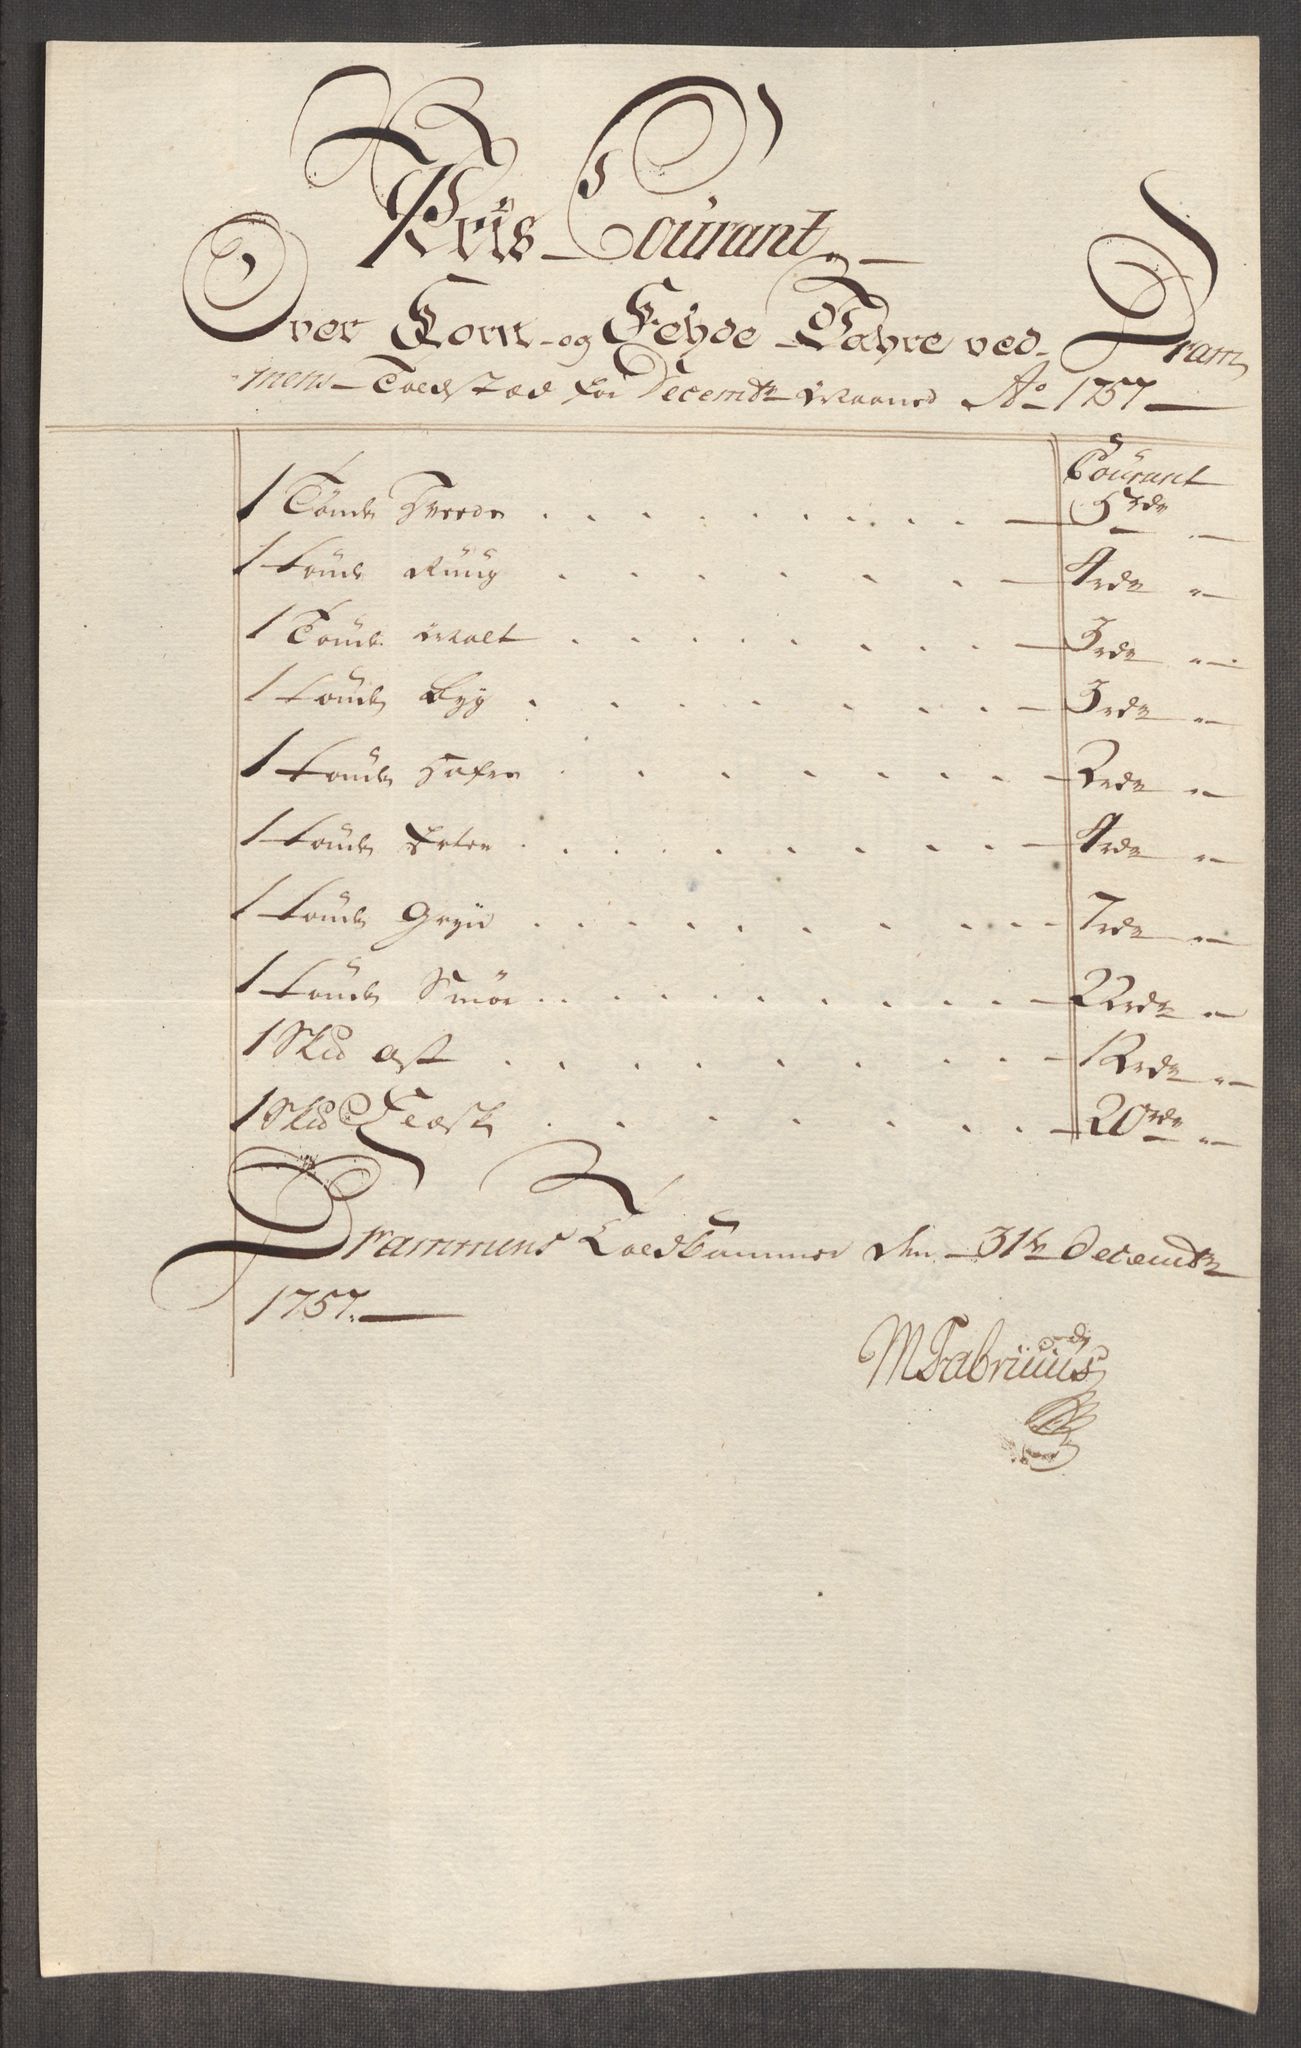 Pris Courant
Over Korn og Fehde Vahre ved Dram
mens Toldsted for Decembr Maaned Ao 1757
Courant
1 Tønde Hvede . . . . . . . . 5 rdr "
1 Tønde Rüüg . . . . . . . 4 rdr "
1 Tønde Malt . . . . . . . . 3 rdr "
1 Tønde Byg . . . . . . . . 3 rdr "
1 Tønde Hafre . . . . . . . 2 rdr "
1 Tønde Erter . . . . . . . . 4 rdr "
1 Tønde Gryn . . . . . . . . 7 rdr "
1 Tønde Smør . . . . . . . . 22 rdr "
1 Skd Ost . . . . . . . . 12 rdr "
1 Skd Flæsk . . . . . . . 20 rdr "
Drammens Toldkammer den 31te Decembr
1757.
MFabritius